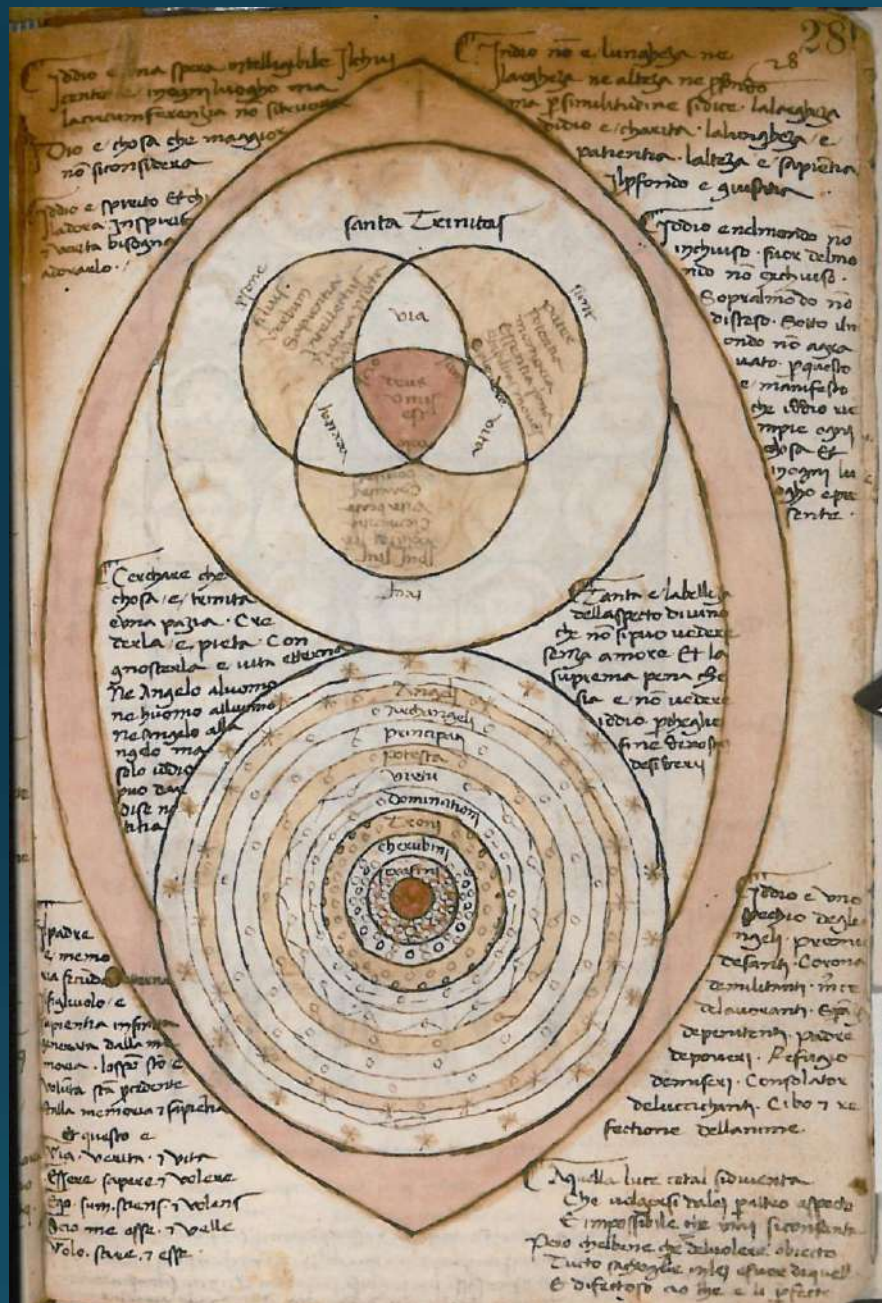 28
28
Iddio e una spera intelligibile Ilchui
centro e inogni luogho ma
lacircumferenzia nō sitruova
Dio e chosa che maggior
nō siconsidera
Iddio e spirito Et chi
ladora Inspirito
7 verita bisogna
adorarlo ·
Iddio nō e lungheza ne
largheza ne alteza ne ꝓfondo
ma ꝑsimilitudine sidice · lalargheza
didio e charita · lalongheza / e
patientia · lalteza e sapiētia
Ilpfondo e giustitia
Iddio enelmondo nō
inchiuso · fuor delmo
ndo nō exchiuso ·
Sopralmōdo nō
disteso · Sotto ilm
ondo nō aggra
vato · ꝑquesto
e manifesto
che iddio rie
mpie ogni
chosa Et
inogni lu
ogho epre
sente ·
santa Trinitas
filius
verbum
Sapientia
Intellectus
via
pater
potentia
memoria
Essentia
deus
unus
est
veritas
vita
Cerchare che
chosa / e / trinita
e una pazia · Cre
derla / e / pieta · Con
gnosterla e vita etterna
Ne Angelo aluomo
ne huomo alluomo
Ne Angelo alla
ngelo ma
solo iddio
puo dar
dise no
titia
Tanta e labelleza
dellaspecto divino
che nō sipuo vedere
senza amore Et la
suprema pena che
sia e nō vedere
iddio ꝑchegle
fine dinostri
desiderii
Angeli
Archangeli
principati
potesta
virtu
Dominationi
Troni
cherubini
serafini
Ilpadre
e memo
ria
figliuolo / e
sapientia infinita
generata dalla me
moria · lospō stō e
volūta stā ꝓcedente
dalla memoria 7 sapiētia
Et questo e
Via · verita · 7 vita
Essere sapere 7 volere
Ego · sum · sciens · 7 volens
Scio me esse · 7 velle
Volo · scire · 7 esse ·
Iddio e uno
specchio degle
angeli · premio
desanti · Corona
demilitanti ·
delavoranti ·
depenitenti · padre
depoveri · Refugio
demiseri · Consolator
Cibo 7 re
fectione dellanime ·
Aquella luce cotal sidiventa
Che volgersi dalei ꝑaltro aspecto
E impossibile che mai siconsenta
Pero chelbene che delvolere obiecto
Tucto saccoglie inlei efuor diquella
E difectivo cio che e li ꝑfecto